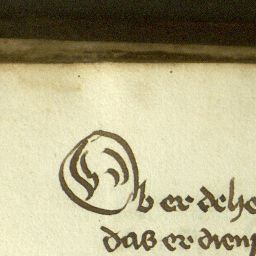 Ob er dehe
das er dien